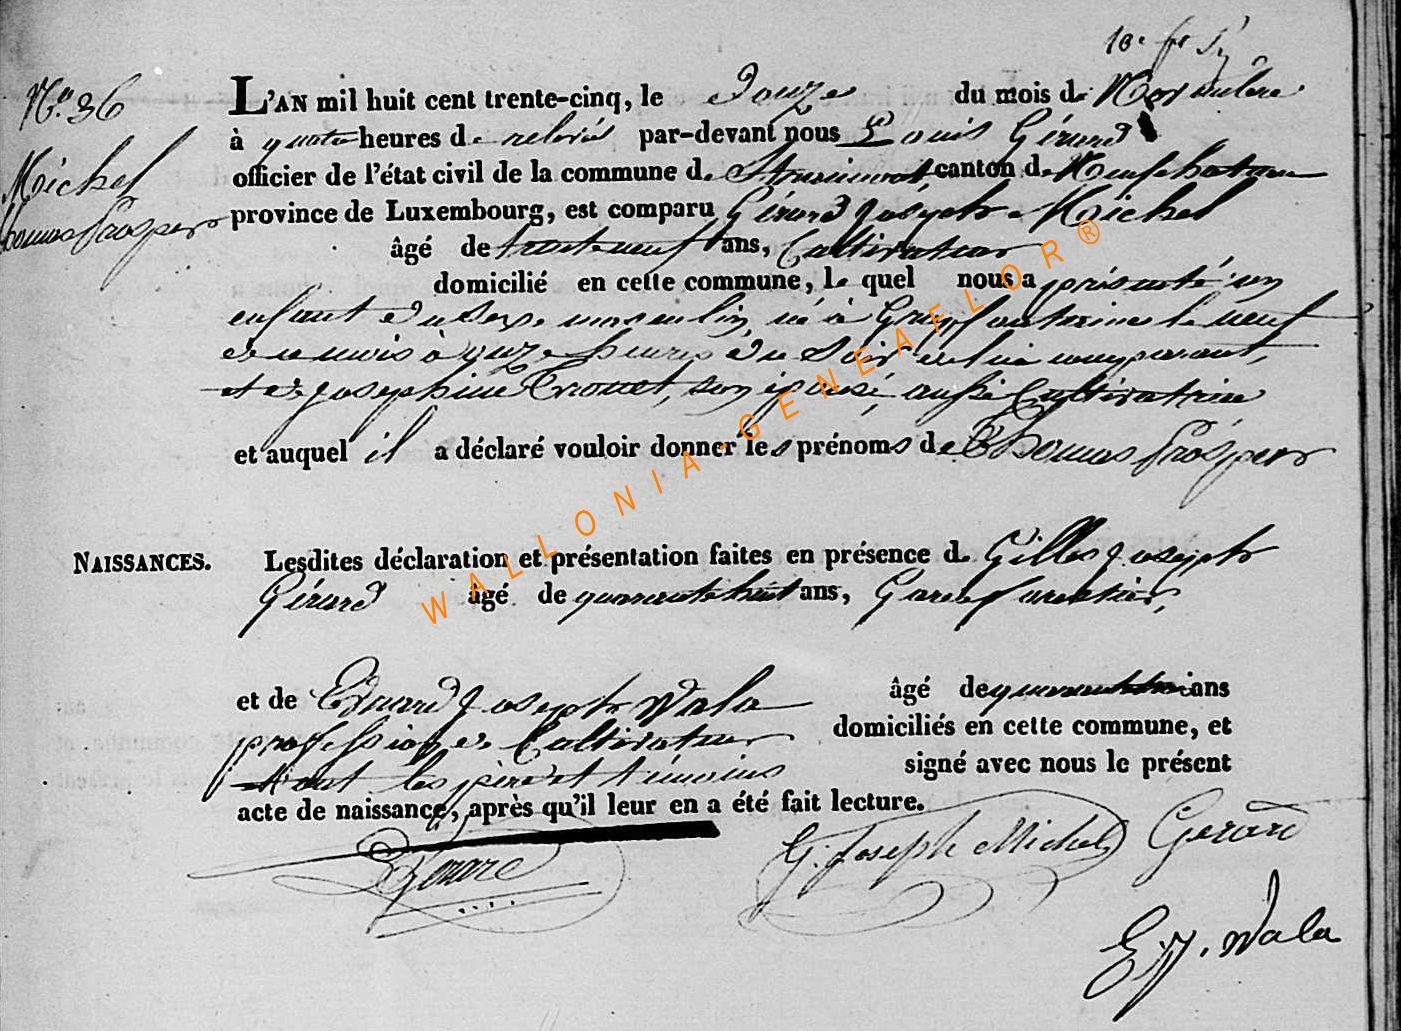 N° 36
Michel
Thomas Prosper
L'AN mil huit cent trente-cinq, le Douze du mois de Novembre
à quatre heures de relevée par-devant nous Louis Gérard
officier de l'état civil de la commune de canton de Neufchateau
province de Luxembourg, est comparu Gérard Joseph Michel
âgé de trente neuf ans, Cultivateur
domicilié en cette commune, le quel nous a présenté un
enfant du sexe masculin, né à Grapfontaine le neuf
de ce mois à onze heures du Soir de lui comparant,
et de Josephine son épouse, aussi Cultivatrice
et auquel il a déclaré vouloir donner les prénoms de Thomas Prosper
NAISSANCES. Lesdites déclaration et présentation faites en présence de Gilles Joseph
Gérard âgé de quarante huit ans, Garde forestier,
et de Eduard Joseph Wala âgé de ans
profession de Cultivateur domiciliés en cette commune, et
et ont les père et témoins signé avec nous le présent
acte de naissance, après qu'il leur en a été fait lecture.
Gérard G. Joseph Michel Gerard
E. J. Wala
WALLONIA-GENEAFLOR®